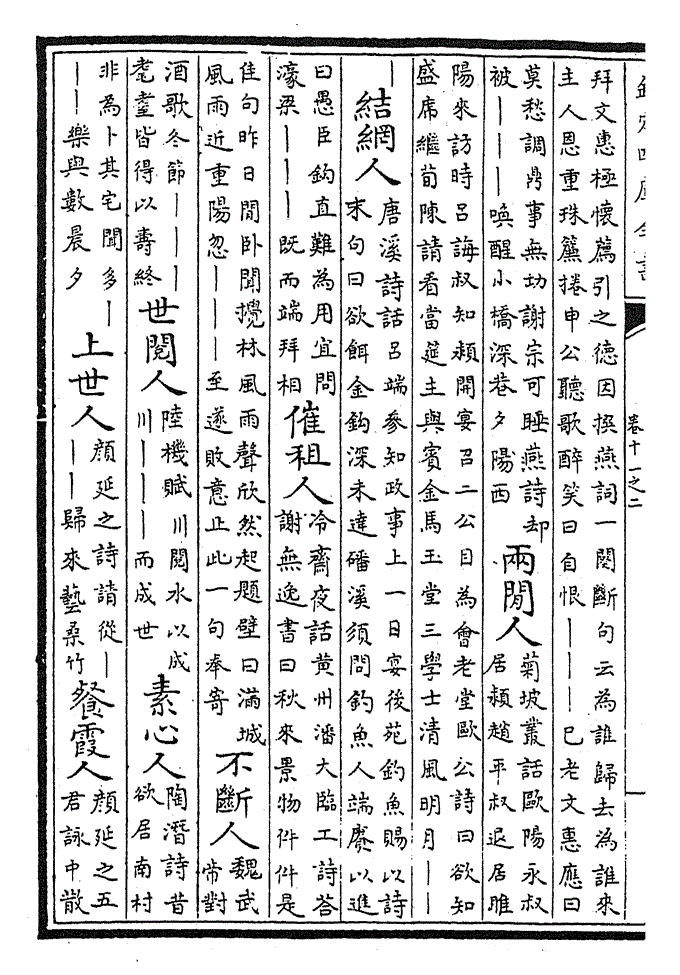 欽定四庫全書
卷十一之二
拜文惠極懷薦引之德因撰燕詞一闋斷句云為誰歸去為誰來
主人恩重珠簾捲申公聽歌醉笑曰自恨———巳老文惠應曰
莫愁調鼎事無功謝宗可睡燕詩却
被———喚醒小橋深巷夕陽西
兩閒人
菊坡叢話歐陽永叔
居潁趙平叔退居睢
陽來訪時呂誨叔知潁開宴召二公目為會老堂歐公詩曰欲知
盛席繼荀陳請看當筵主與賓金馬玉堂三學士清風明月——
—
結網人
唐溪詩話呂端參知政事上一日宴後苑釣魚賜以詩
末句曰欲餌金鈎深未達磻溪須問釣魚人端賡以進
曰愚臣鈎直難為用宜問
濠梁———既而端拜相
催租人
冷齋夜話黄州潘大臨工詩荅
謝無逸書曰秋來景物件件是
佳句昨日閒卧聞攪林風雨聲欣然起題壁曰滿城
風雨近重陽忽———至遂敗意止此一句奉寄
不斷人
魏武
常對
酒歌冬節———
耄耋皆得以壽終
世閱人
陸機賦川閱水以成
川———而成世
素心人
陶潛詩昔
欲居南村
非為卜其宅聞多—
——樂與數晨夕
上世人
顔延之詩請從—
——歸來藝桑竹
餐霞人
顔延之五
君詠中散